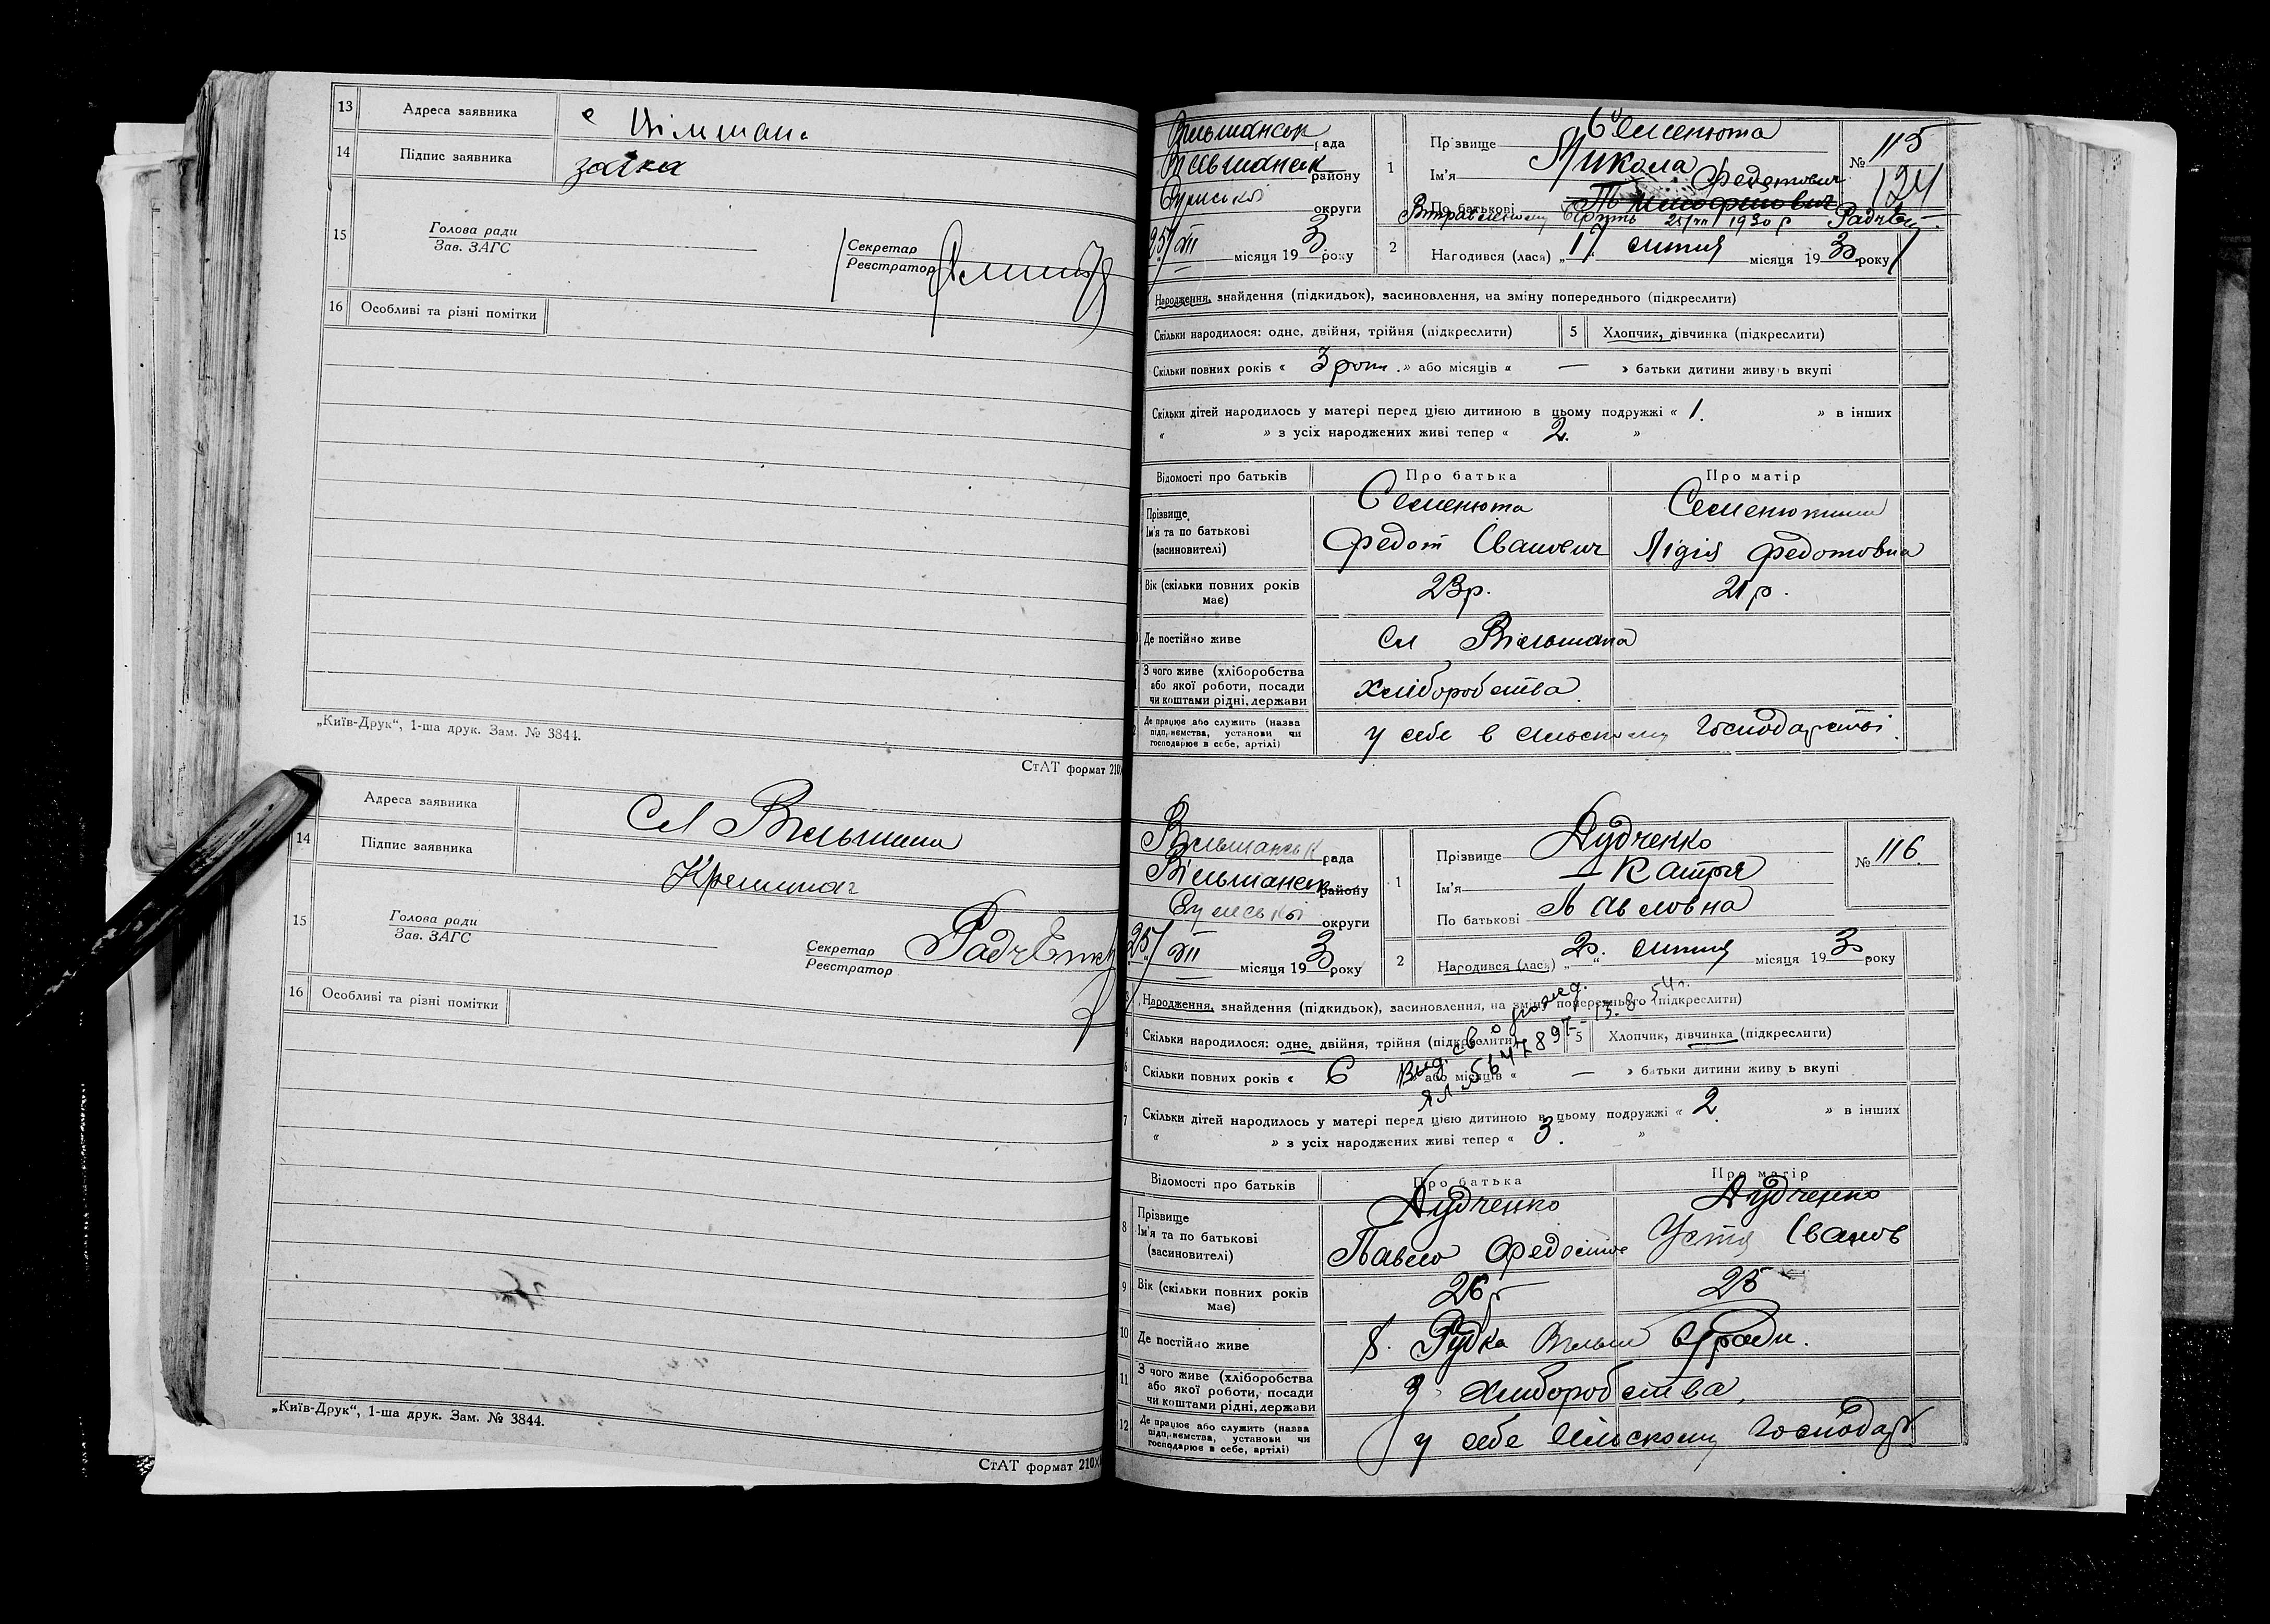 13 Адреса заявника с Вільшана
14 Підпис заявника заїка
15 Голова ради
Зав. ЗАГС
Секретар
Реєстратор
16 Особливі та різні помітки
„Київ-Друк“, 1-ша друк. Зам. № 3844.
СтАТ формат 210
Адреса заявника Сл Вільшана
14 Підпис заявника
15 Голова ради
Зав. ЗАГС
Секретар
Реєстратор
16 Особливі та різні помітки
„Київ-Друк“, 1-ша друк. Зам. № 3844.
СтАТ формат 210×
Вільшанськ рада
Вільшанськ району
Сумської округи
25/VII місяця 193 року
1 Прізвище Семенюта
Ім'я Микола
По батькові Федотович
№ 115
124
25/VII 1930 р
2 Народився (лася) „17“ липня місяця 1930 року
Народження, знайдення (підкидьок), засиновлення, на зміну попереднього (підкреслити)
Скільки народилося: одне, двійня, трійня (підкреслити) 5 Хлопчик, дівчинка (підкреслити)
Скільки повних років « 3 роки » або місяців « — » батьки дитини живуть вкупі
Скільки дітей народилось у матері перед цією дитиною в цьому подружжі « 1. » в інших
« » з усіх народжених живі тепер « 2. »
Відомості про батьків Про батька Про матір
Прізвище, Ім'я та по батькові (засновителі)
Семенюта Федот Іванович
Лідія Федотовна
Вік (скільки повних років має) 23р. 21р.
Де постійно живе Сл Вільшана
З чого живе (хліборобства або якої роботи, посади чи коштами рідні, держави хліборобства
Де працює або служить (назва підприємства, установи чи господарює в себе, артілі) у себе в сільському господарстві.
Вільшанськ рада
Вільшанськ району
Сумської округи
25/VII місяця 193 року
1 Прізвище Дудченко
Ім'я Катря
По батькові Павловна
№ 116.
2 Народився (лася) „20.“ липня місяця 1930 року
Народження, знайдення (підкидьок), засиновлення, на зміну попереднього (підкреслити)
15.8.54г.
Скільки народилося: одне, двійня, трійня (підкреслити) 5 Хлопчик, дівчинка (підкреслити)
6 Скільки повних років « 6 » або місяців « — » батьки дитини живуть вкупі
7 Скільки дітей народилось у матері перед цією дитиною в цьому подружжі « 2 » в інших
« » з усіх народжених живі тепер « 3. »
Відомості про батьків Про батька Про матір
8 Прізвище Ім'я та по батькові (засиновителі)
Дудченко Павло
Дудченко Устя Іванов
9 Вік (скільки повних років має) 26р 25
10 Де постійно живе х. Рудка Вільш с/ради.
11 З чого живе (хліборобства або якої роботи, посади чи коштами рідні, держави З хліборобства,
12 Де працює або служить (назва підприємства, установи чи господарює в себе, артілі) у себе сільскому господар